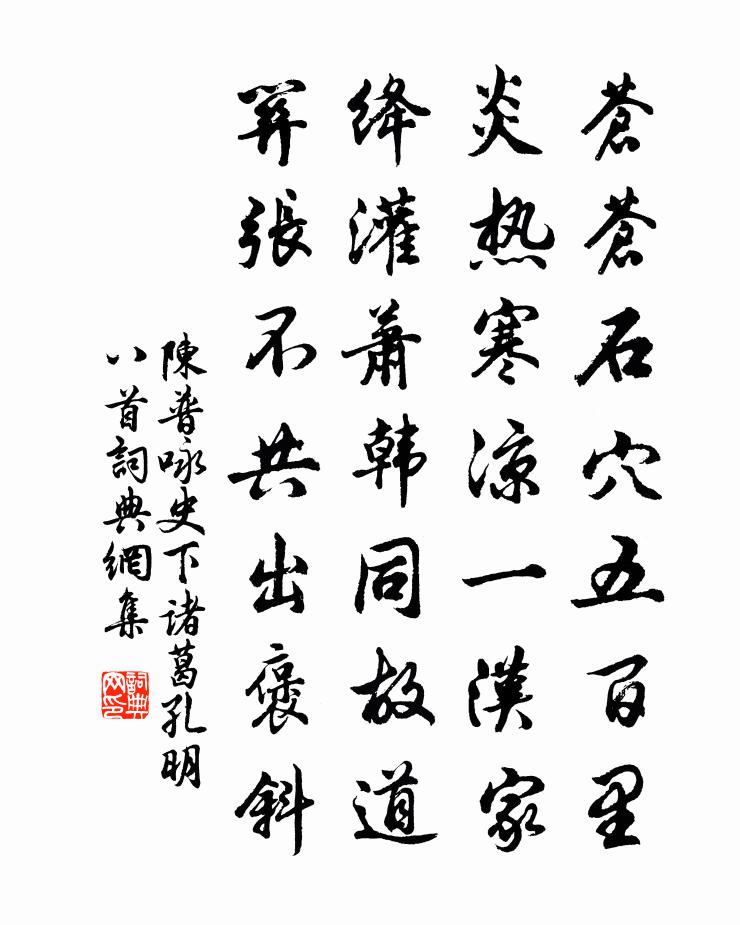 蒼蒼石穴五百里
炎热寒涼一漢家
絳灌蕭韩同故道
關張不共出褒斜
陳普咏史下诸葛孔明
八首詞典網集
詞典网印